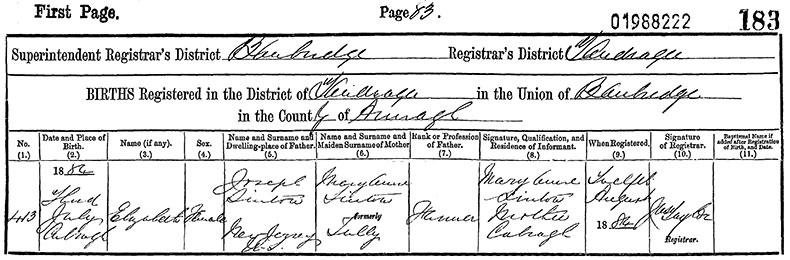 First Page. Page 83. 01988222 183
Superintendent Registrar's District Banbridge Registrar's District Tandragee
BIRTHS Registered in the District of Tandragee in the Union of Banbridge
in the County of Armagh
No. Date and Place of Birth. Name (if any). Sex. Name and Surname and Dwelling-place of Father. Name and Surname and Maiden Surname of Mother Rank or Profession of Father. Signature, Qualification, and Residence of Informant. When Registered. Signature of Registrar. Baptismal Name if added after Registration of Birth, and Date.
(1.) (2.) (3.) (4.) (5.) (6.) (7.) (8.) (9.) (10.) (11.)
413
1884
Third
July
Cabragh
Elizabeth
Female
Joseph
Sinton
New Jersey
U.S.
Mary Anne
Sinton
formerly
Tully
Farmer
Mary Anne
Sinton
Mother
Cabragh
Twelfth
August
1884
Registrar.